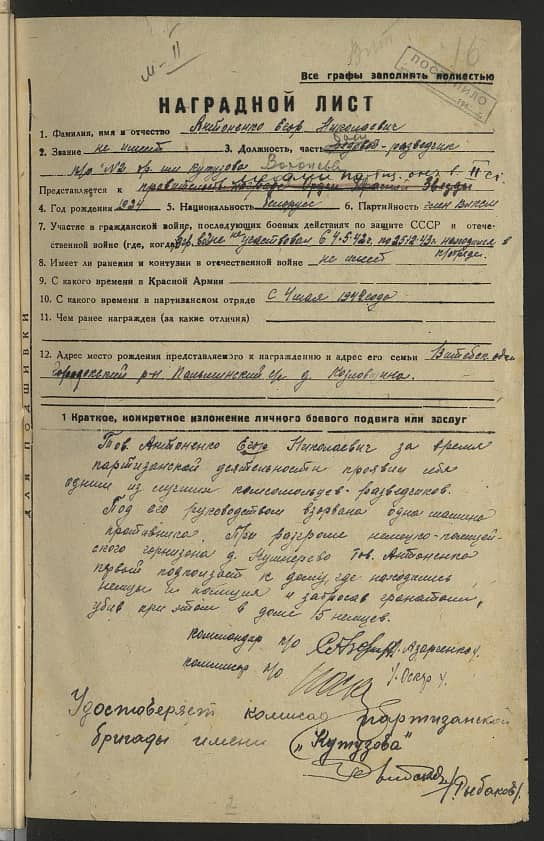 м-II
16
Все графы заполнять полностью
НАГРАДНОЙ ЛИСТ
1. Фамилия, имя и отчество Антоненко Егор Николаевич
2. Звание не имеет 3. Должность, часть разведчик
п/о №2 бр. им Кутузова
Представляется к Орден Красной Звезды II ст.
4. Год рождения 1924 5. Национальность белорус 6. Партийность член ВЛКСМ
7. Участие в гражданской войне, последующих боевых действиях по защите СССР и отече-
ственной войне (где, когда) не участвовал с 4.5.42г. по 25.12.43г. находился в
п/отряде.
8. Имеет ли ранения и контузии в отечественной войне не имеет
9. С какого времени в Красной Армии
10. С какого времени в партизанском отряде с 4 мая 1942 года
11. Чем ранее награжден (за какие отличия)
12. Адрес место рождения представляемого к награждению и адрес его семьи Витебск. обл
Городокский р-н. с/с д.
ДЛЯ ПОДШИВКИ
1 Краткое, конкретное изложение личного боевого подвига или заслуг
Тов. Антоненко Егор Николаевич за время
партизанской деятельности проявил себя
одним из лучших комсомольцев-разведчиков.
Под его руководством взорвана одна машина
противника. При разгроме немецко-полицей-
ского гарнизона д. тов. Антоненко
первый подползает к дому где находились
немцы и полиция и забросав гранатами,
убив при этом в доме 15 немцев.
Командир п/о /Азарченко/.
комиссар п/о
Удостоверяет комиссар партизанской
бригады имени „Кутузова"
/Рыбаков/.
2